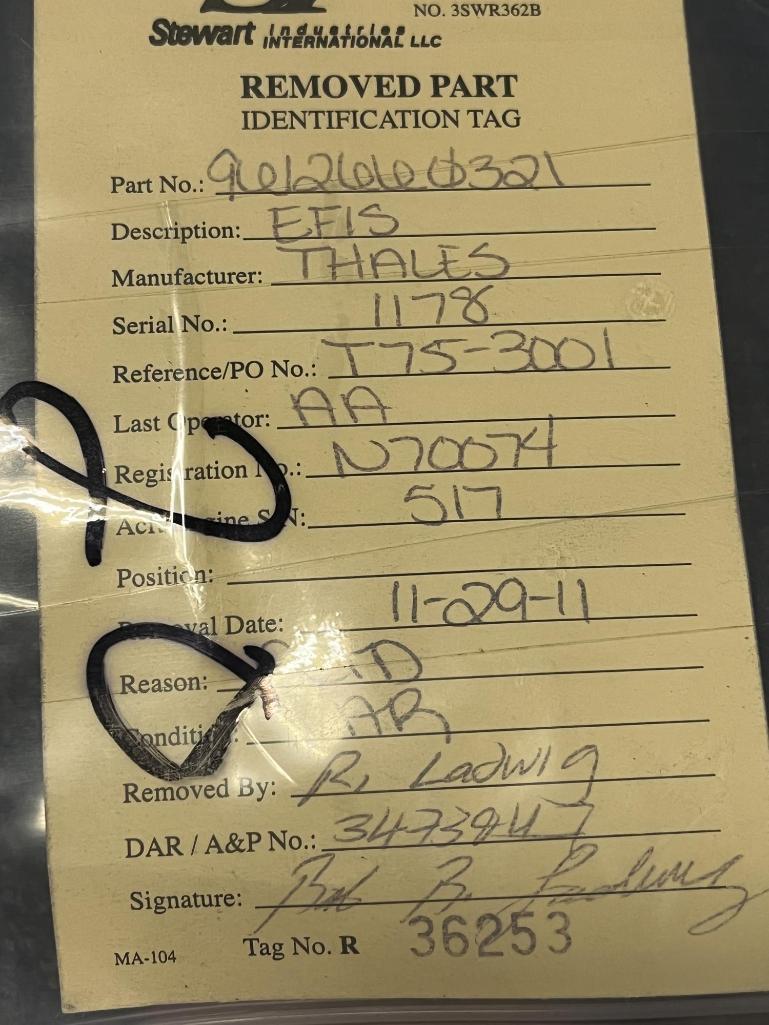 NO. 3SWR362B
Stewart Industries
INTERNATIONAL LLC
REMOVED PART
IDENTIFICATION TAG
Part No.: 9612660321
Description: EFIS
Manufacturer: THALES
Serial No.: 1178
Reference/PO No.: T75-3001
Last Operator: AA
Registration No.: N70074
Acft/Engine S/N: 517
Position:
Removal Date: 11-29-11
Reason:
Condition: AR
Removed By: R. Ladwig
DAR / A&P No.:
Signature: Bob R. Ladwig
MA-104 Tag No. R 36253